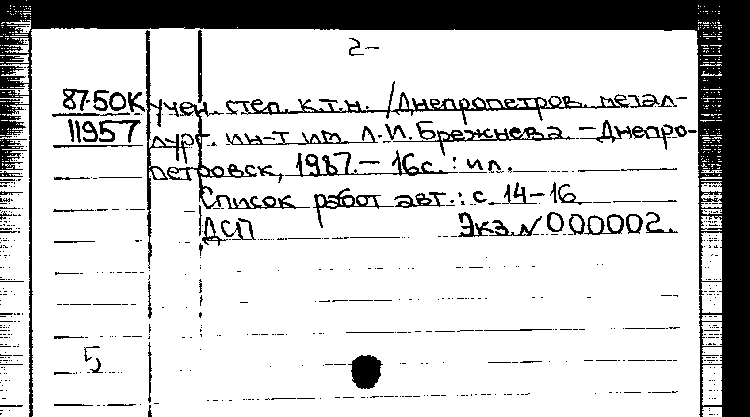 2-
87-50К учен. степ. к.т.н. /Днепропетров. метал-
11957 лург. ин-т им. Л.И. Брежнева. - Днепро-
петровск, 1987. - 16с. : ил.
Список работ авт.: с. 14-16.
ДСП Экз. N 000002.
5